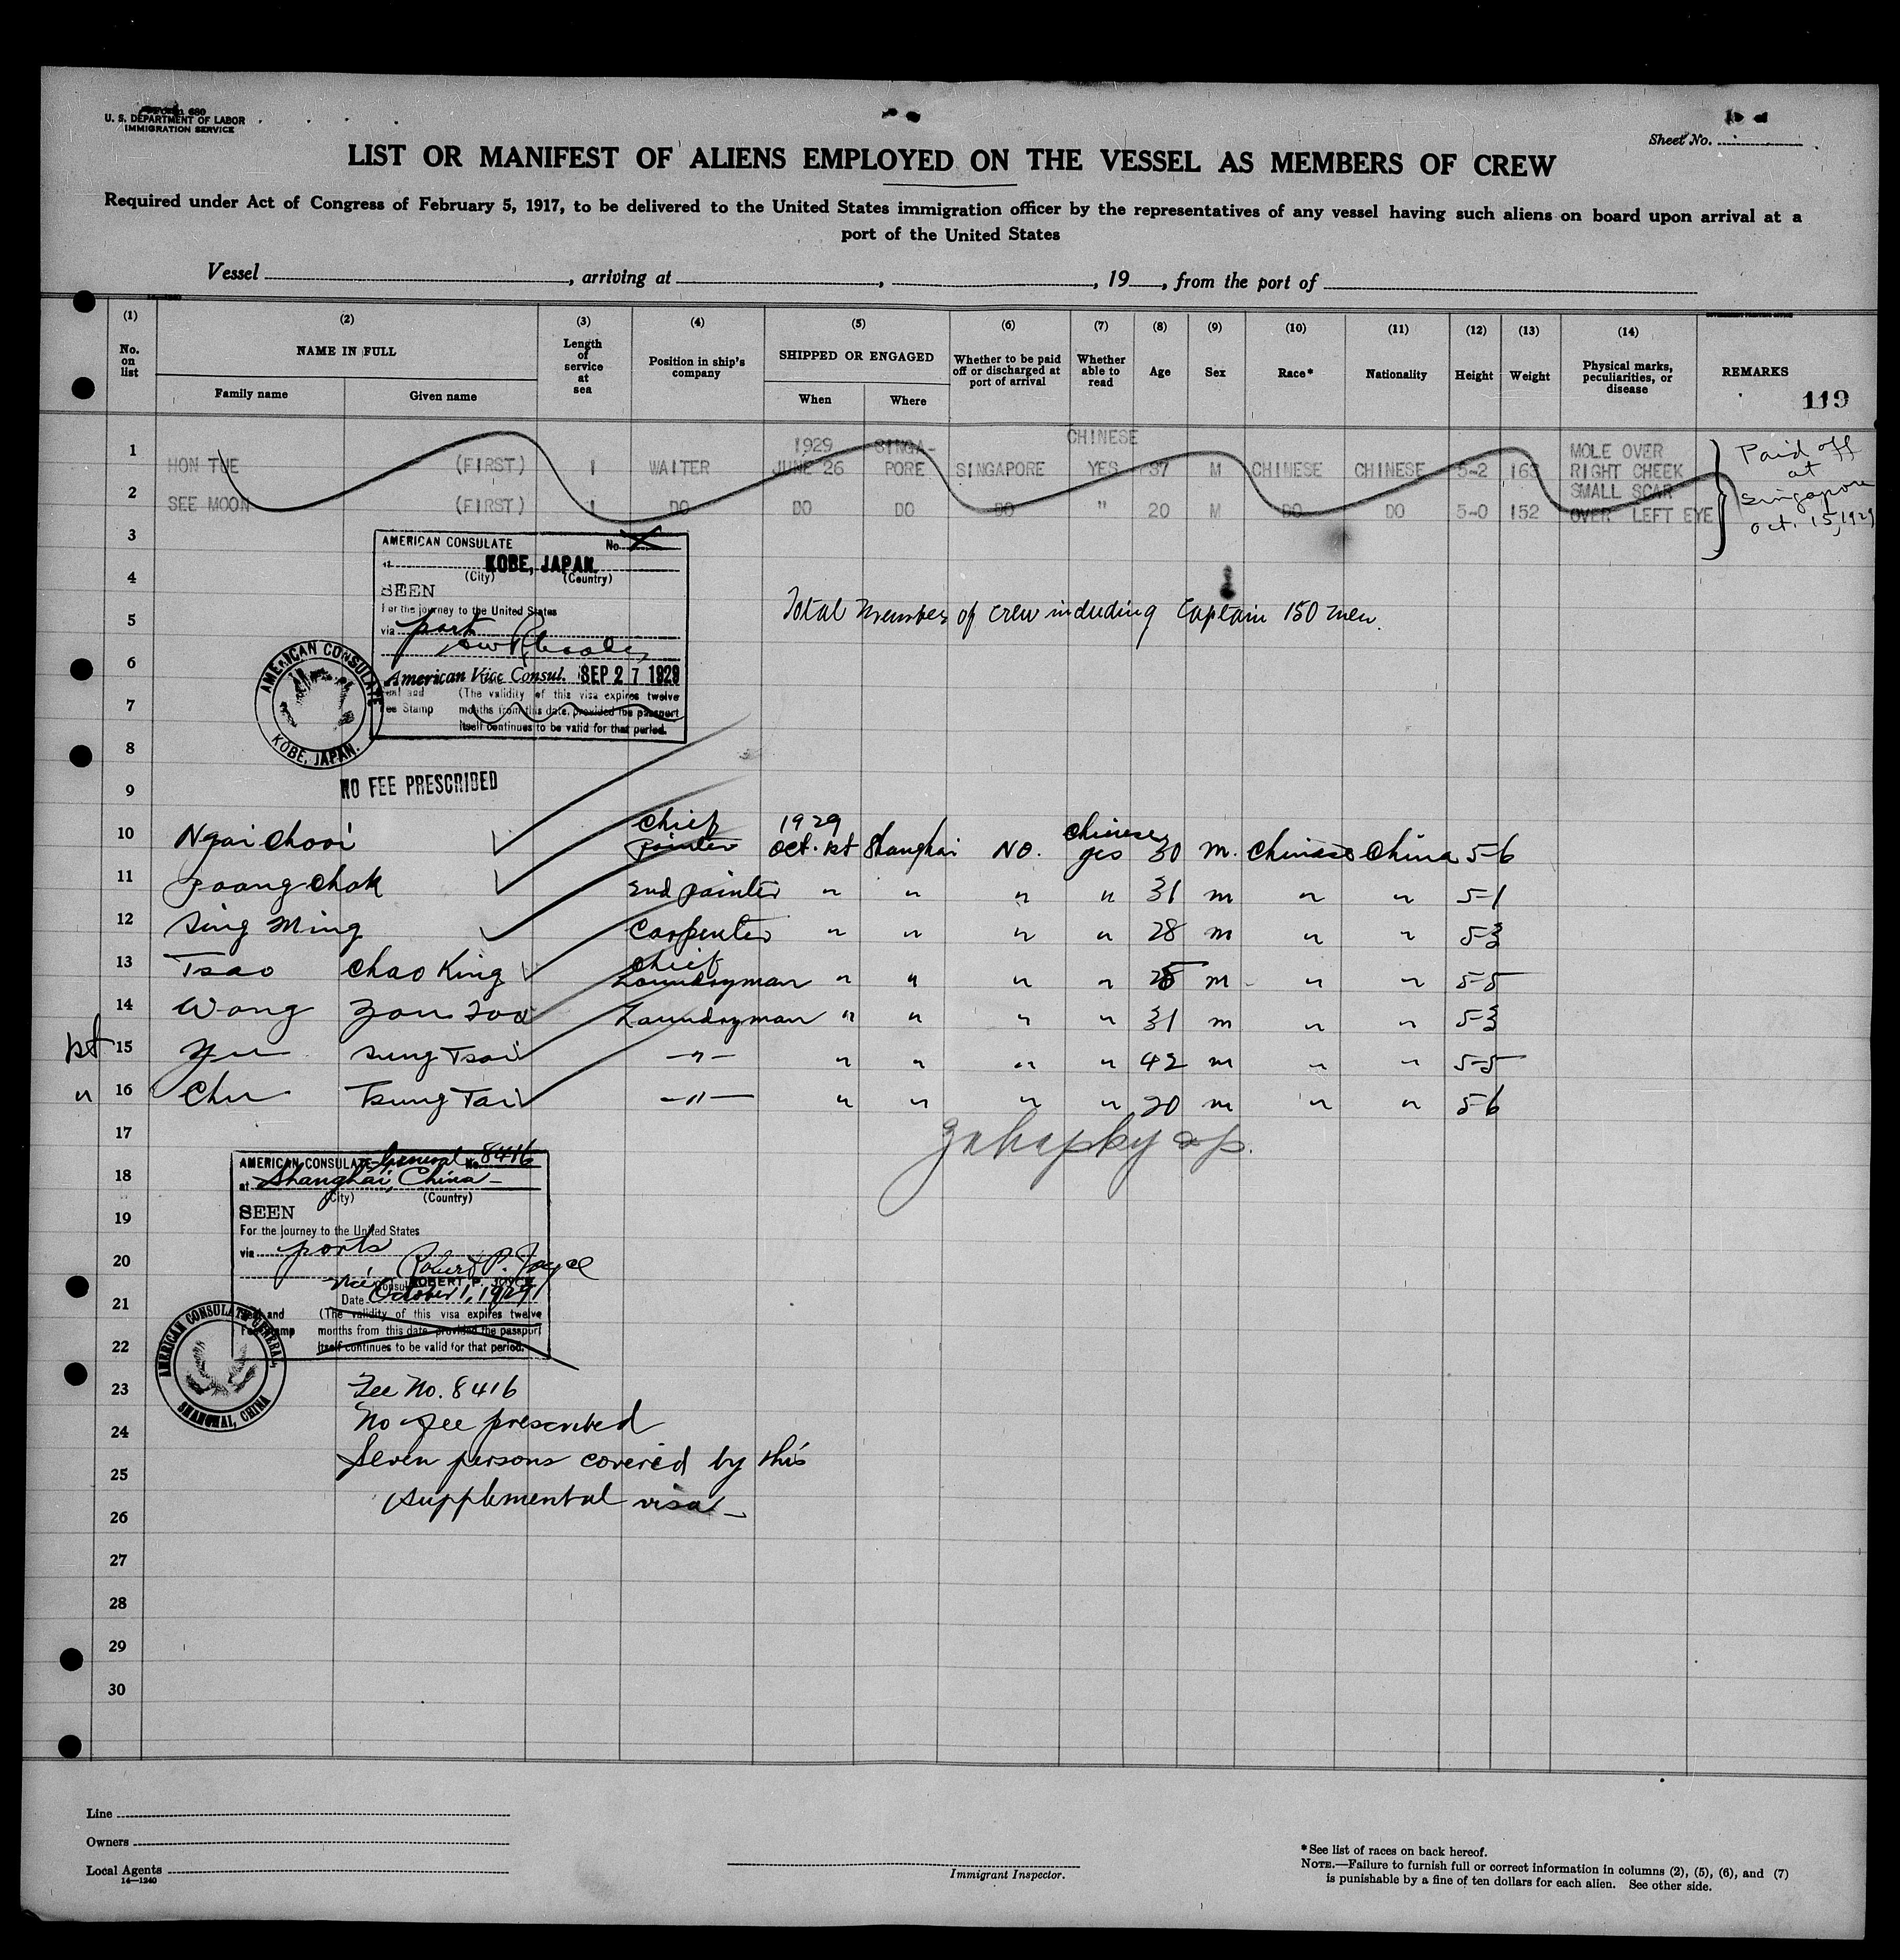 Form 680
U. S. DEPARTMENT OF LABOR
IMMIGRATION SERVICE
Sheet No.
LIST OR MANIFEST OF ALIENS EMPLOYED ON THE VESSEL AS MEMBERS OF CREW
Required under Act of Congress of February 5, 1917, to be delivered to the United States immigration officer by the representatives of any vessel having such aliens on board upon arrival at a
port of the United States
Vessel , arriving at , , 19 , from the port of
(1) (2) (3) (4) (5) (6) (7) (8) (9) (10) (11) (12) (13) (14)
No. on list NAME IN FULL Length of service at sea Position in ship's company SHIPPED OR ENGAGED Whether to be paid off or discharged at port of arrival Whether able to read Age Sex Race* Nationality Height Weight Physical marks, peculiarities, or disease REMARKS
Family name Given name When Where
119
1 HON TUE (FIRST) 1 WAITER 1929 JUNE 26 SINGA-PORE SINGAPORE CHINESE YES 37 M CHINESE CHINESE 5-2 163 MOLE OVER RIGHT CHEEK
2 SEE MOON (FIRST) 1 DO DO DO DO " 20 M DO DO 5-0 152 SMALL SCAR OVER LEFT EYE
Paid off
at
Singapore
Oct. 15, 1929
3
4
5
6
7
8
9
AMERICAN CONSULATE No.
at KOBE, JAPAN.
(City) (Country)
SEEN
For the journey to the United States
via port
American Vice Consul. SEP 27 1929
(The validity of this visa expires twelve
Fee Stamp months from this date, provided the passport
itself continues to be valid for that period.
AMERICAN CONSULATE
KOBE, JAPAN.
NO FEE PRESCRIBED
Total member of crew including Captain 150 men.
10 Ngai Chooi Chief Painter 1929 Oct. 1st Shanghai No. Chinese yes 30 m. Chinese China 5-6
11 Poang Chok 2nd painter " " " " 31 m " " 5-1
12 Sing Ming Carpenter " " " " 28 m " " 5-3
13 Tsao Chao King Chief Laundryman " " " " 25 m " " 5-5
14 Wong Zou Zoo Laundryman " " " " 31 m " " 5-3
1st 15 Yu Sung Tsai -"- " " " " 42 m " " 5-5
" 16 Chu Tsung Tai -"- " " " " 20 m " " 5-6
17
18
19
20
21
22
23
24
25
26
27
28
29
30
AMERICAN CONSULATE General No. 8416
at Shanghai, China
(City) (Country)
SEEN
For the journey to the United States
via ports
Robert P. Joyce
Vice Consul ROBERT P. JOYCE
Date October 1, 1929
Seal and (The validity of this visa expires twelve
Fee Stamp months from this date, provided the passport
itself continues to be valid for that period.
AMERICAN CONSULATE GENERAL,
SHANGHAI, CHINA
Fee No. 8416
No fee prescribed
Seven persons covered by this
supplemental visa
Line
Owners
Local Agents
14—1240
Immigrant Inspector.
*See list of races on back hereof.
NOTE.—Failure to furnish full or correct information in columns (2), (5), (6), and (7)
is punishable by a fine of ten dollars for each alien. See other side.